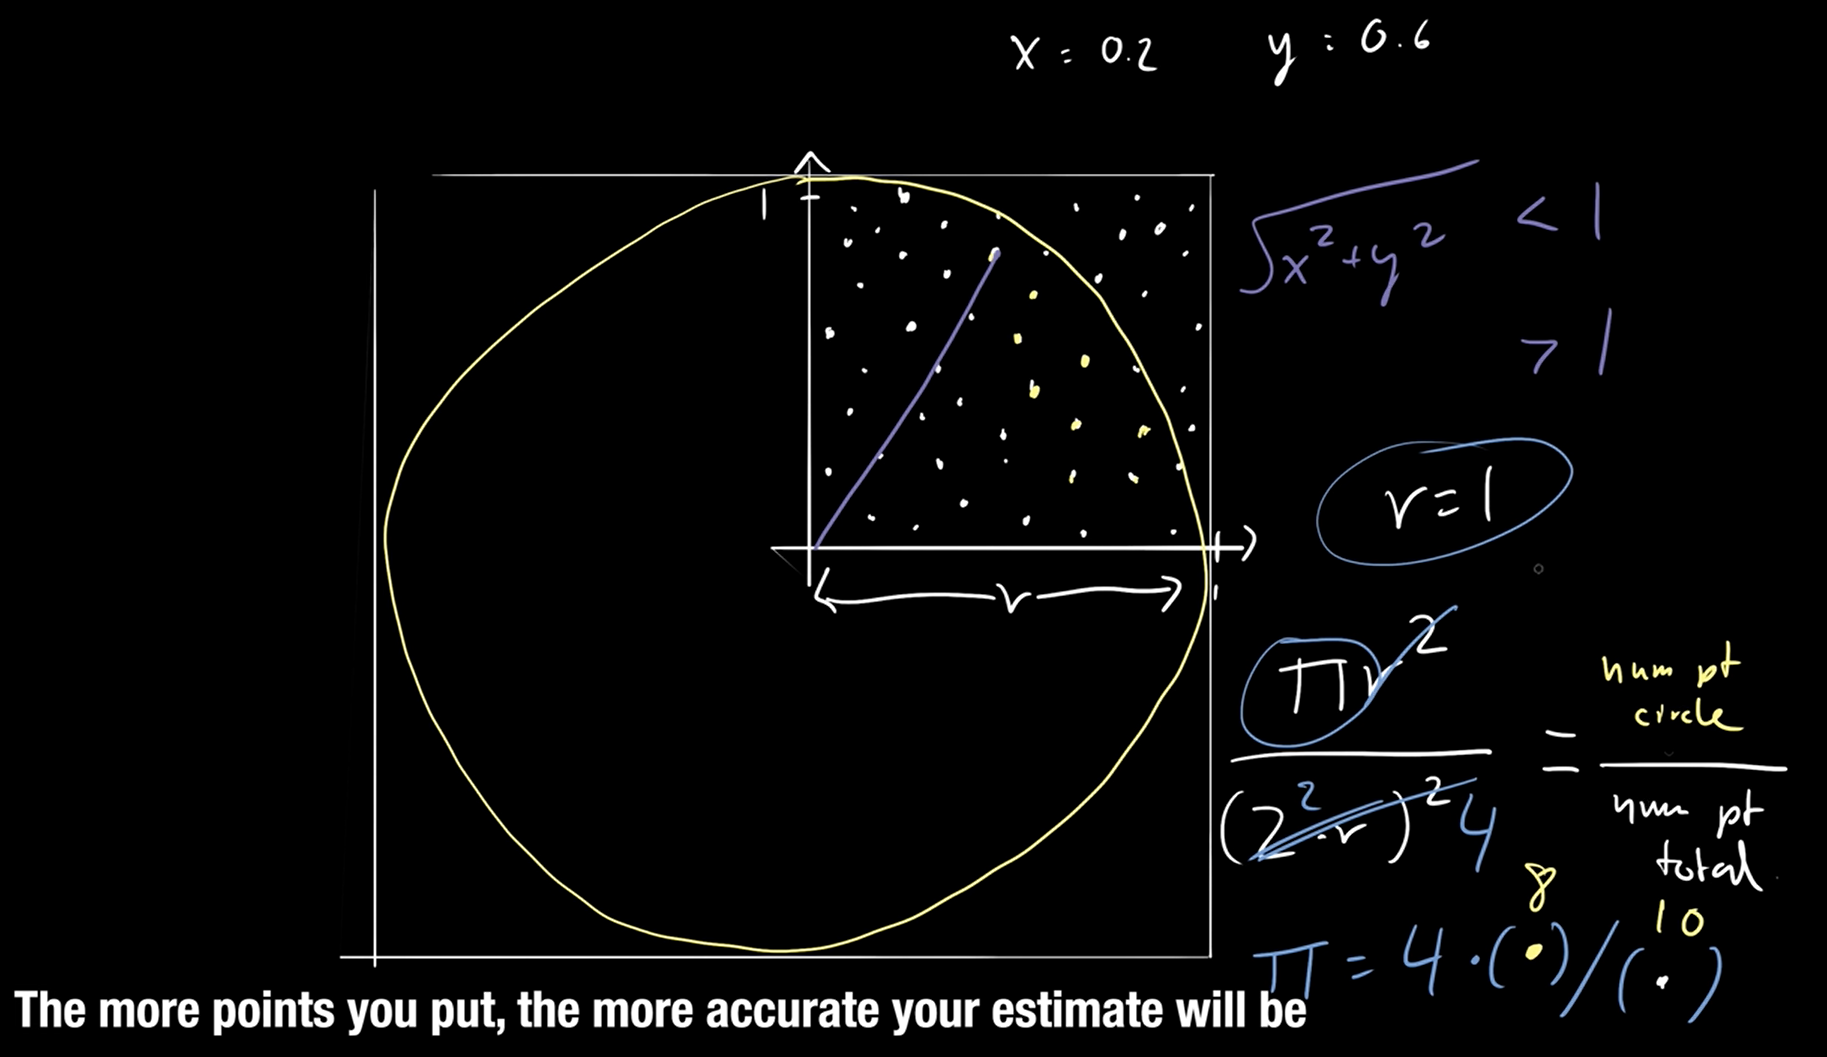 x = 0.2
y = 0.6
1
√x²+y² < 1
> 1
r=1
1
r
πr²
(2²·r)² 4
=
num pt
circle
num pt
total
8
10
π = 4·(·)/(·)
The more points you put, the more accurate your estimate will be